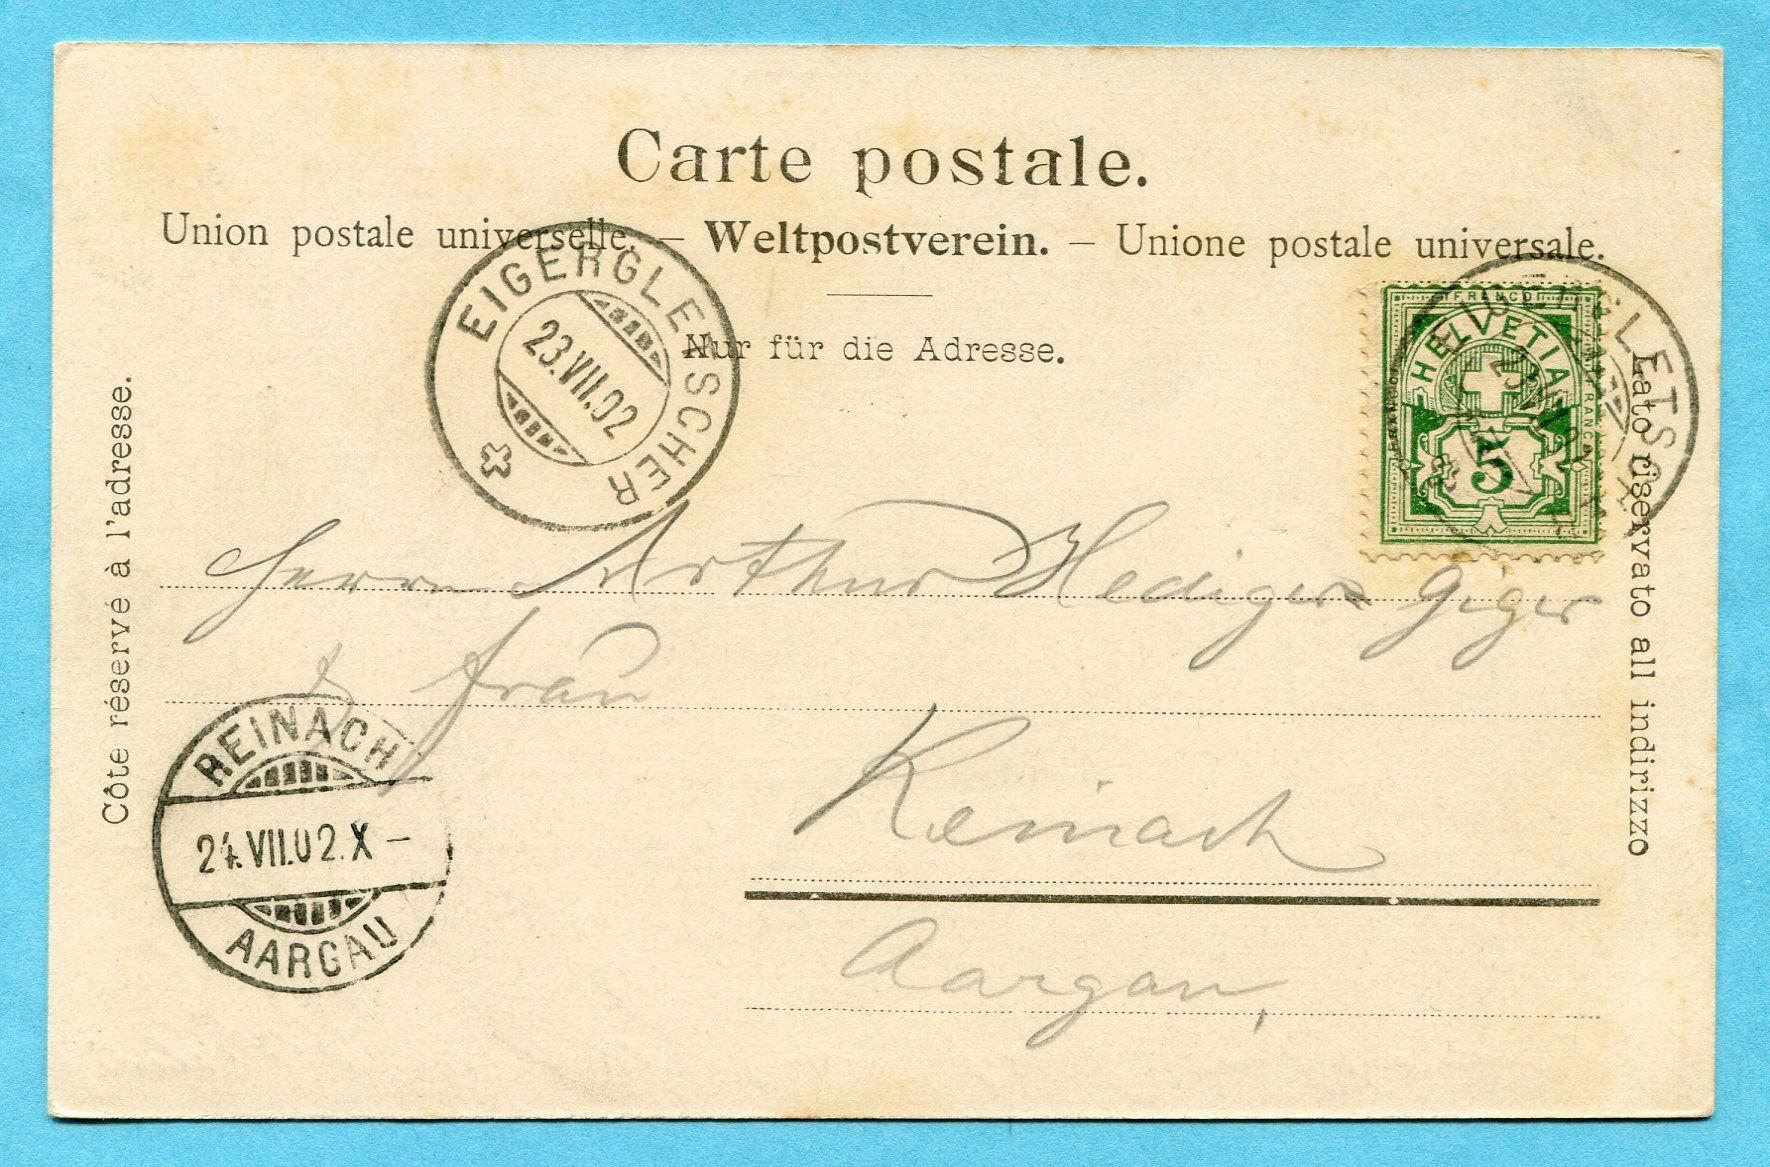 Carte postale.
Union postale universelle. – Weltpostverein. – Unione postale universale.
Nur für die Adresse.
Côte réservé à l'adresse.
Lato riservato all indirizzo
EIGERGLETSCHER
23.VII.02
FRANCO
HELVETIA
5
EIGERGLETSCHER
Herrn Arthur Hediger Giger
& Frau
Reinach
Aargau,
REINACH
24.VII.02.X–
AARGAU